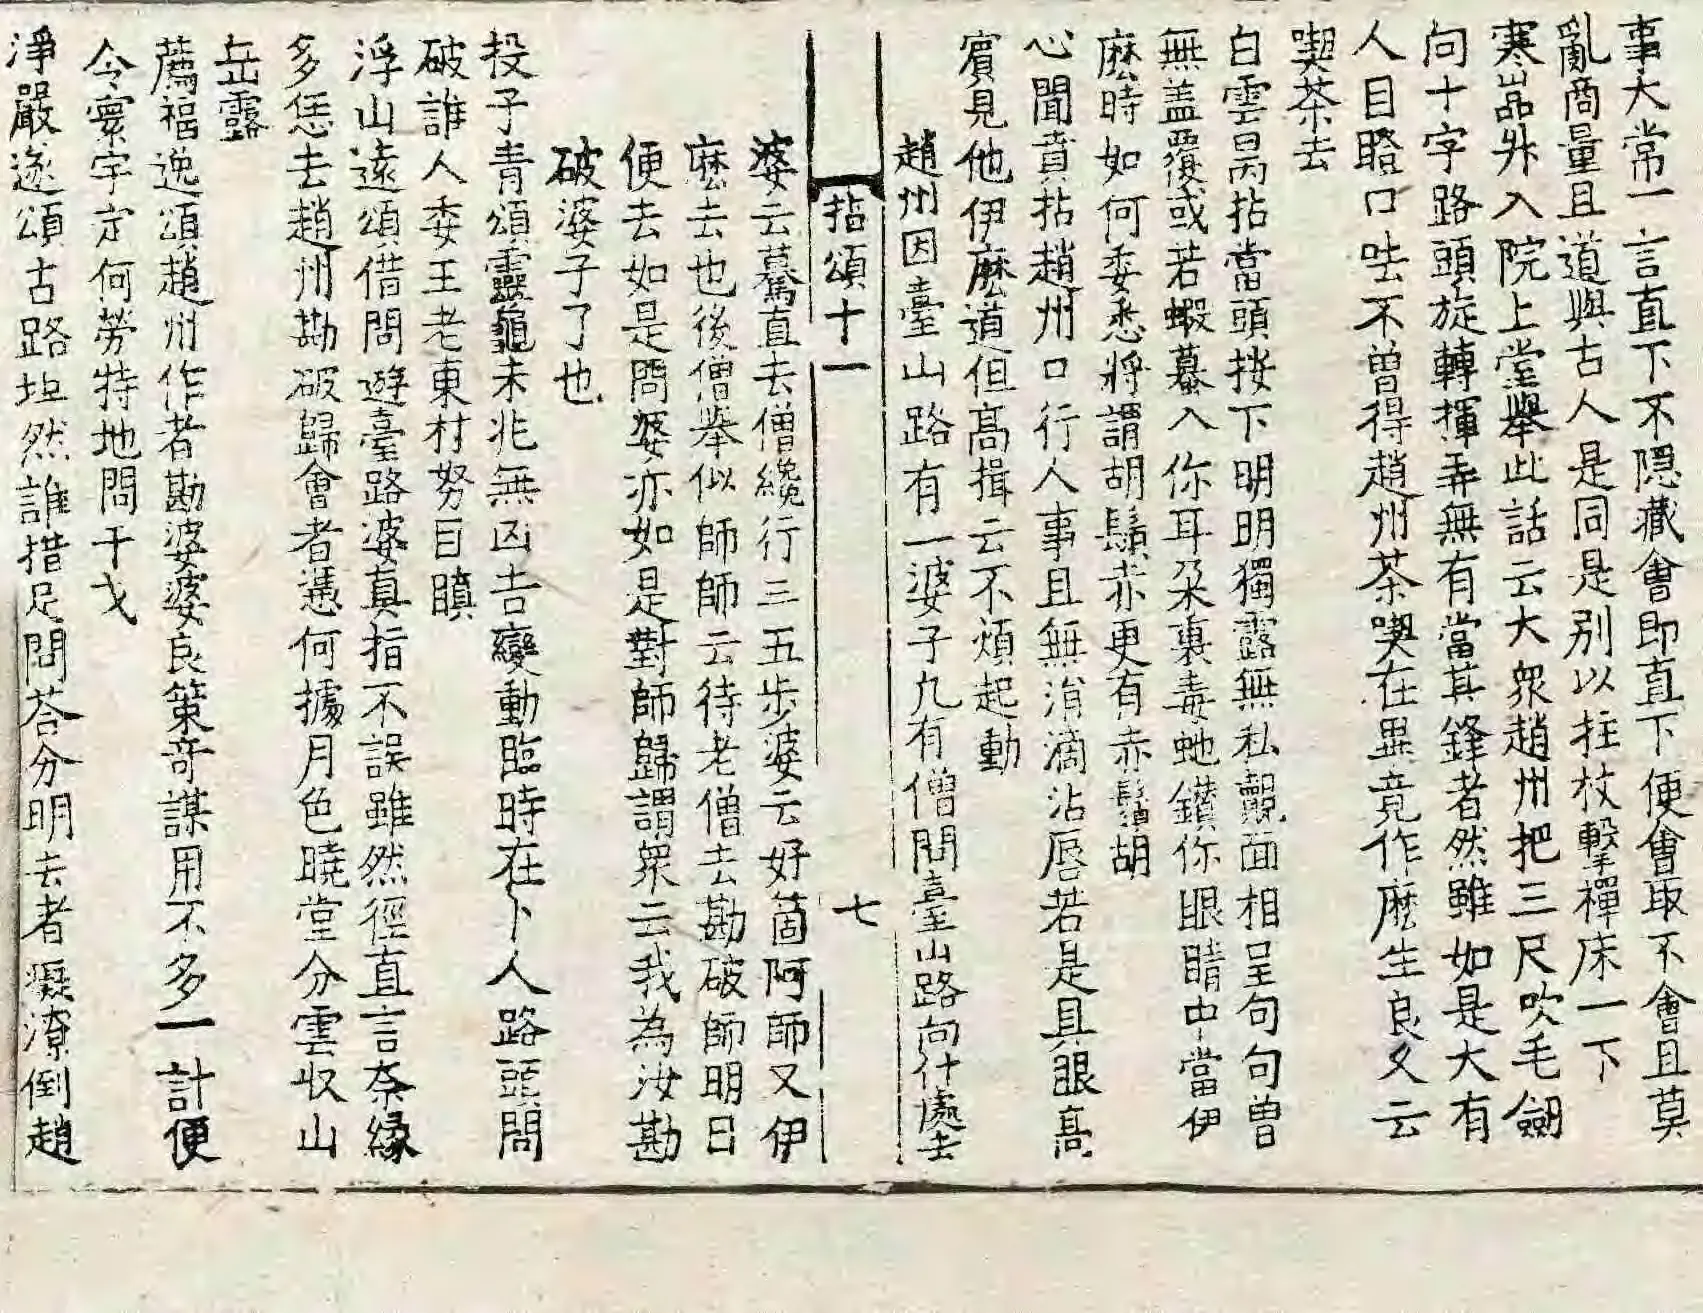 事大常一言直下不隱藏會即直下便會取不會且莫
亂商量且道與古人是同是別以拄杖擊禪床一下
寒嵓升入院上堂舉此話云大眾趙州把三尺吹毛劒
向十字路頭旋轉揮弄無有當其鋒者然雖如是大有
人目瞪口呿不曾得趙州茶喫在畢竟作麽生良久云
喫茶去
白雲昺拈當頭按下明明獨露無私覿面相呈句句曾
無盖覆或若蝦蟇入你耳朶裏毒虵鑚你眼睛中當伊
麽時如何委悉將謂胡鬚赤更有赤鬚胡
心聞賁拈趙州口行人事且無涓滴沾唇若是具眼高
賓見他伊麽道但高揖云不煩起動
趙州因臺山路有一婆子凡有僧問臺山路向什處去
拈頌十一
七
婆云驀直去僧纔行三五步婆云好箇阿師又伊
麽去也後僧舉似師師云待老僧去勘破師明日
便去如是問婆亦如是對師歸謂眾云我為汝勘
破婆子了也
投子青頌靈龜未兆無凶吉變動臨時在卜人路頭問
破誰人委王老東村努目瞋
浮山遠頌借問遊臺路婆真指不誤雖然徑直言柰緣
多恁去趙州勘破歸會者憑何據月色曉堂分雲収山
岳露
薦福逸頌趙州作者勘婆婆良策奇謀用不多一計便
令寰宇定何勞特地問干戈
淨嚴遂頌古路坦然誰措足問荅分明去者癡潦倒趙